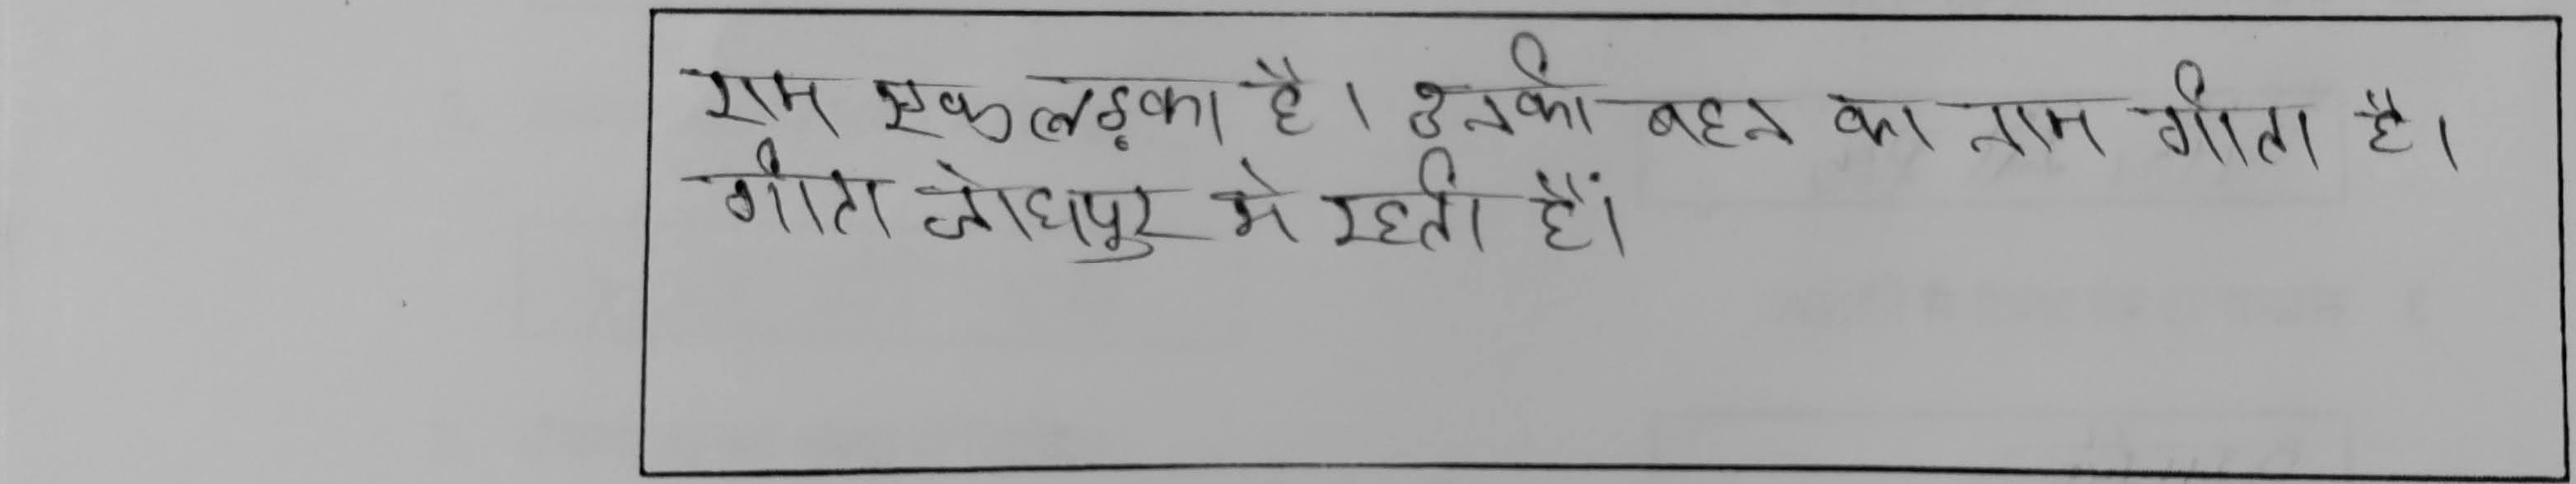 राम एक लड़का है। उनकी बहन का नाम गीता है।
गीता जोधपुर मे रहती हैं।